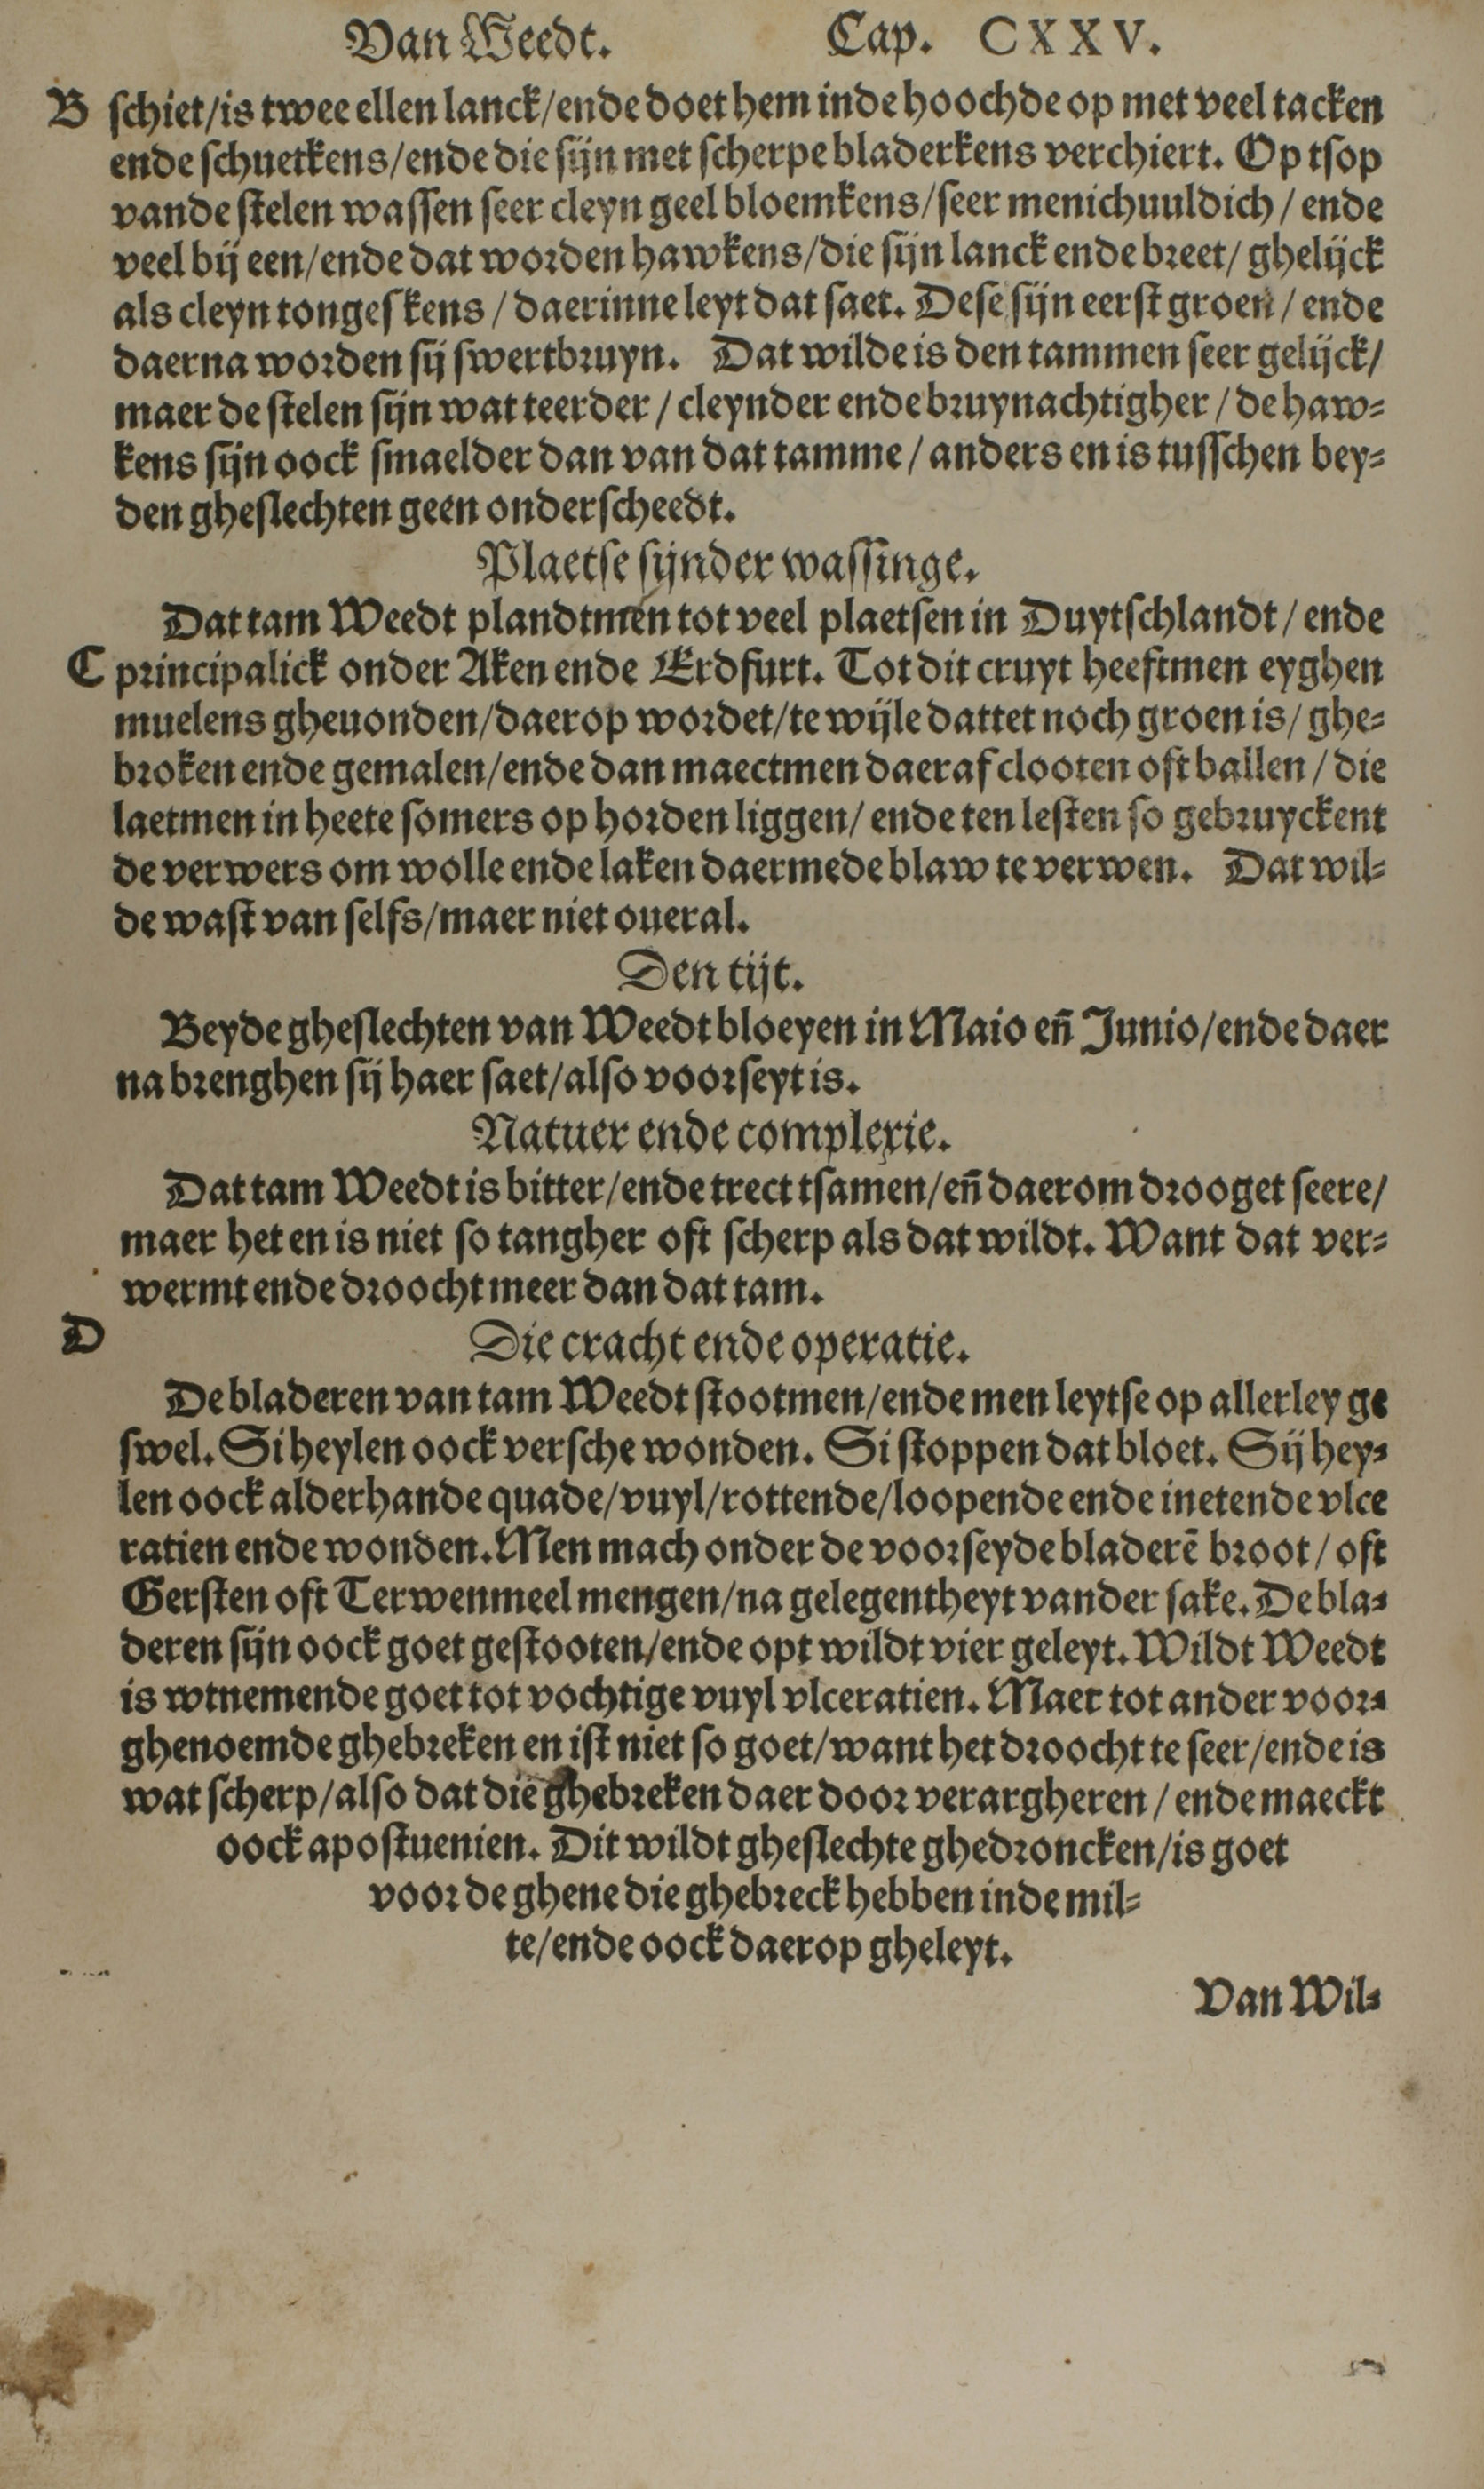 Van Weedt. Cap. CXXV.
B schiet/is twee ellen lanck/ende doet hem inde hoochde op met veel tacken
ende schuetkens/ende die sijn met scherpe bladerkens verchiert. Op tsop
vande stelen wassen seer cleyn geel bloemkens/seer menichuuldich/ende
veel bij een/ende dat worden hawkens/die sijn lanck ende breet/ghelijck
als cleyn tongeskens/daerinne leyt dat saet. Dese sijn eerst groen/ende
daerna worden sij swertbruyn. Dat wilde is den tammen seer gelijck/
maer de stelen sijn wat teerder/cleynder ende bruynachtigher/de haw-
kens sijn oock smaelder dan van dat tamme/anders en is tusschen bey-
den gheslechten geen onderscheedt.
Plaetse sijnder wassinge.
Dat tam Weedt plandtmen tot veel plaetsen in Duytschlandt/ende
C principalick onder Aken ende Erdfurt. Tot dit cruyt heeftmen eyghen
muelens gheuonden/daerop wordet/te wijle dattet noch groen is/ghe-
broken ende gemalen/ende dan maectmen daeraf clooten oft ballen/die
laetmen in heete somers op horden liggen/ende ten lesten so gebruyckent
de verwers om wolle ende laken daermede blaw te verwen. Dat wil-
de wast van selfs/maer niet oueral.
Den tijt.
Beyde gheslechten van Weedt bloeyen in Maio eñ Junio/ende daer
na brenghen sij haer saet/also voorseyt is.
Natuer ende complexie.
Dat tam Weedt is bitter/ende trect tsamen/eñ daerom drooget seere/
maer het en is niet so tangher oft scherp als dat wildt. Want dat ver-
wermt ende droocht meer dan dat tam.
D Die cracht ende operatie.
De bladeren van tam Weedt stootmen/ende men leytse op allerley ge
swel. Si heylen oock versche wonden. Si stoppen dat bloet. Sij hey-
len oock alderhande quade/vuyl/rottende/loopende ende inetende vlce
ratien ende wonden. Men mach onder de voorseyde bladerē broot/oft
Gersten oft Terwenmeel mengen/na gelegentheyt vander sake. De bla-
deren sijn oock goet gestooten/ende opt wildt vier geleyt. Wildt Weedt
is wtnemende goet tot vochtige vuyl vlceratien. Maer tot ander voor-
ghenoemde ghebreken en ist niet so goet/want het droocht te seer/ende is
wat scherp/also dat die ghebreken daer door verargheren/ende maeckt
oock apostuenien. Dit wildt gheslechte ghedroncken/is goet
voor de ghene die ghebreck hebben inde mil-
te/ende oock daerop gheleyt.
Van Wil-